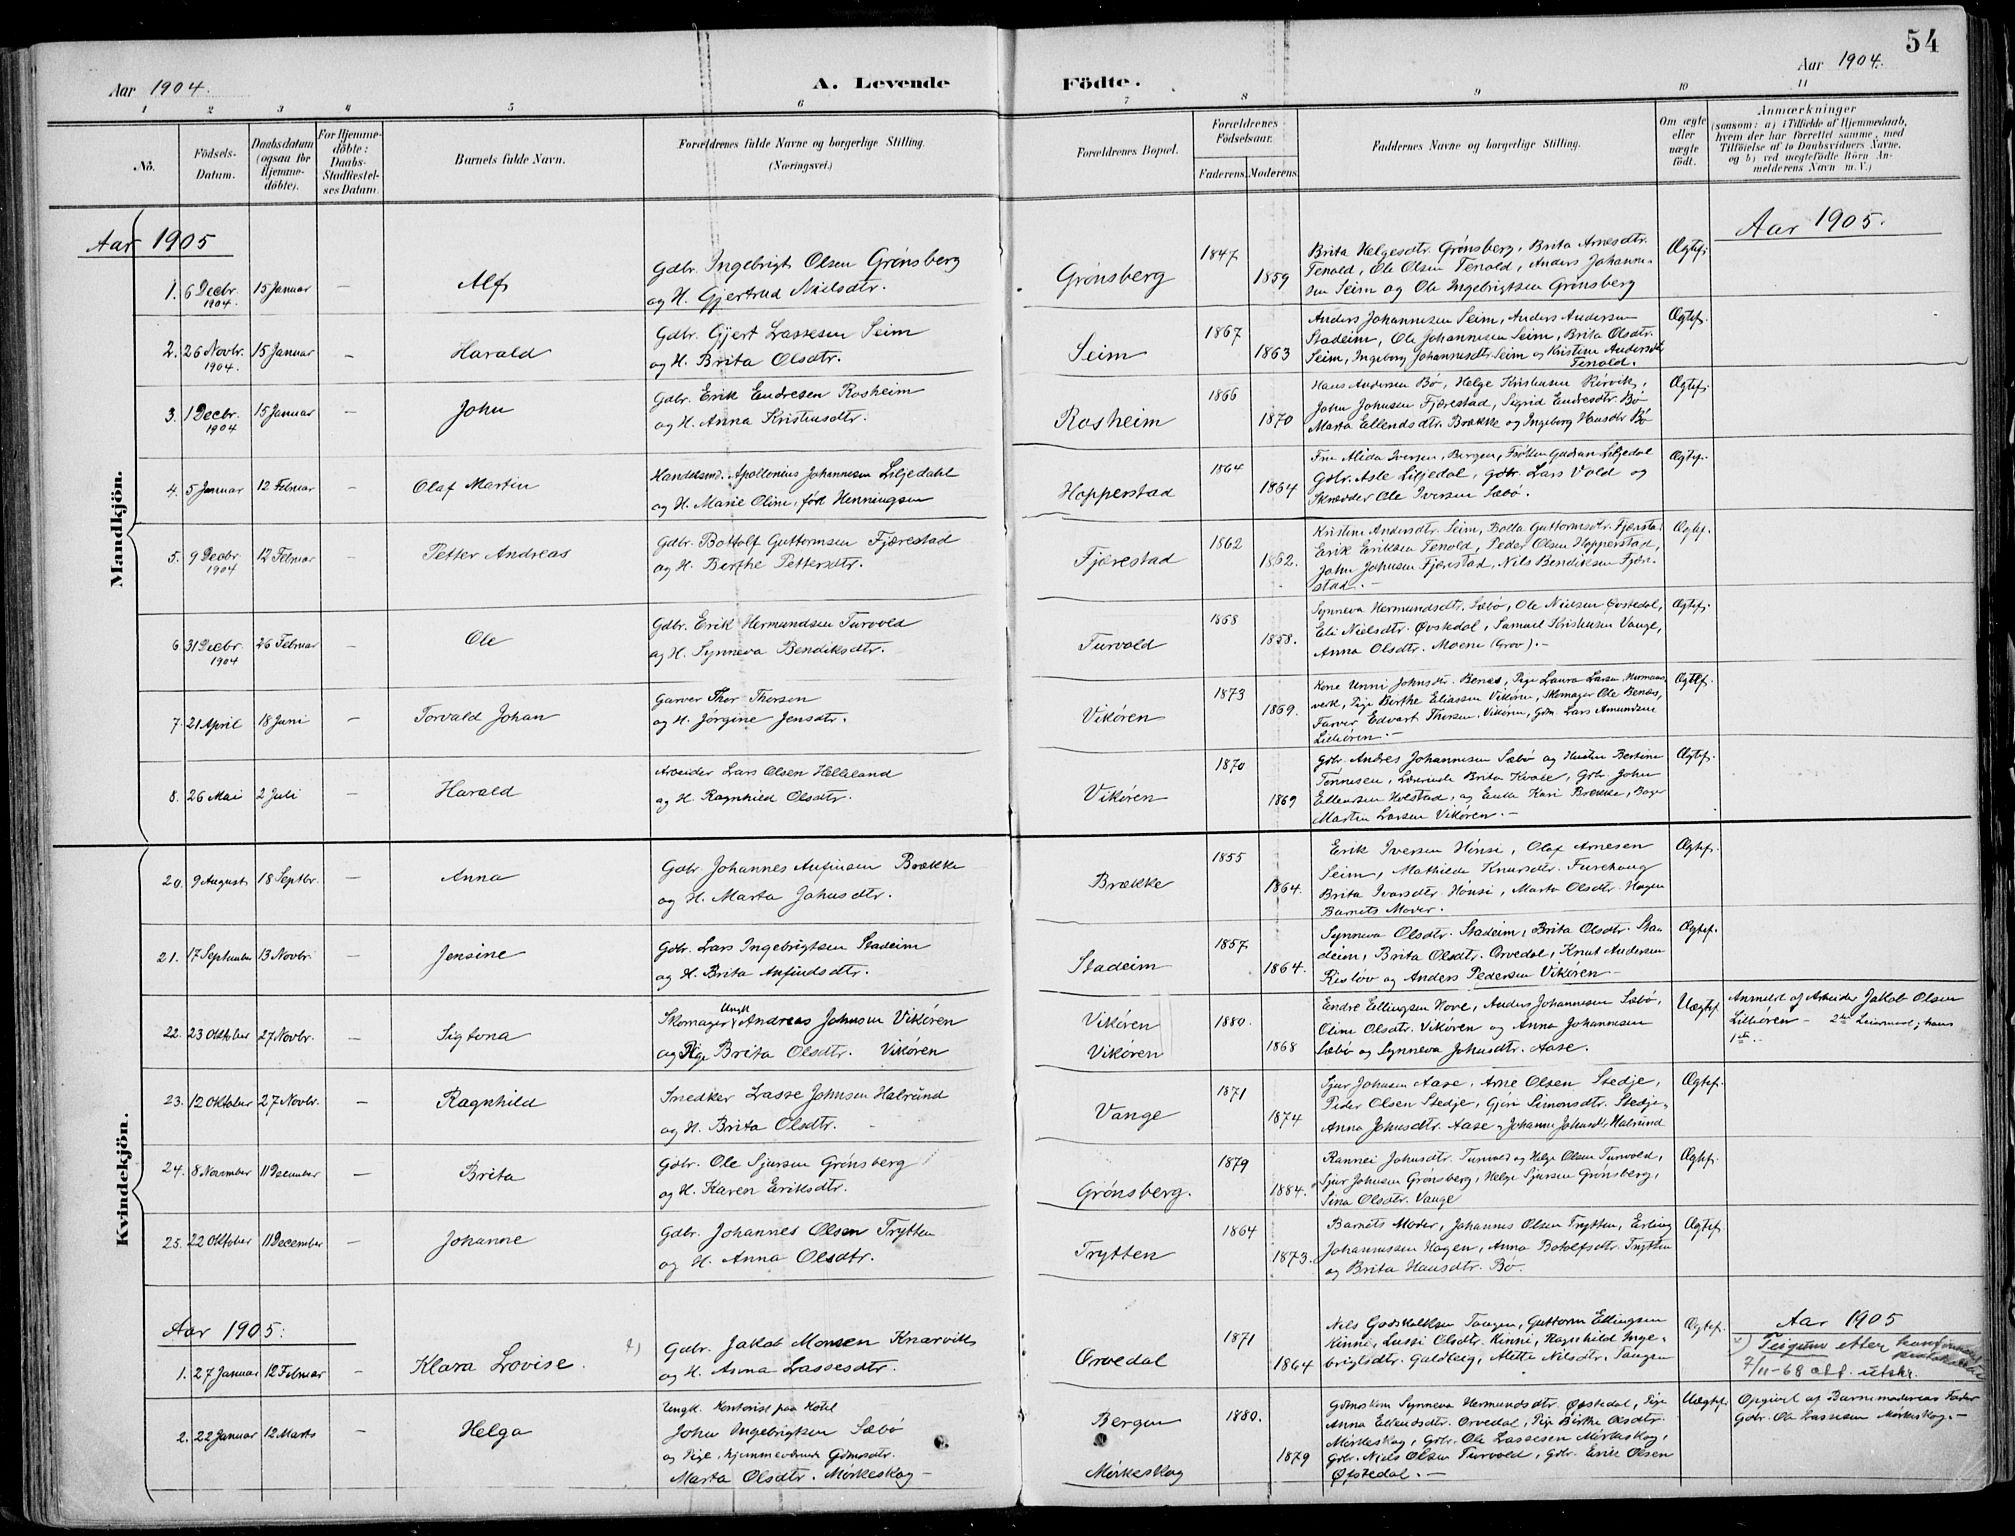 54
Aar 1904.
A. Levende Födte.
Aar 1904.
1 2 3 4 5 6 7 8 9 10 11
No.
Födsels-Datum.
Daabsdatum (ogsaa for Hjemmedöbte).
For Hjemmedöbte: Daabs-Stadfæstelses Datum.
Barnets fulde Navn.
Forældrenes fulde Navne og borgerlige Stilling.
(Næringsvei.)
Forældrenes Bopæl.
Forældrenes Födselsaar.
Faderens. Moderens.
Faddernes Navne og borgerlige Stilling.
Om ægte eller uægte födt.
Anmærkninger
(saasom: a) i Tilfælde af Hjemmedaab, hvem der har forrettet samme, med Tilföielse af to Daabsvidners Navne, og b) ved uægtefödte Börn Anmelderens Navn m. V.)
Mandkjön.
Aar 1905
Aar 1905.
1. 6 Decbr. 1904. 15 Januar — Alf
Gdbr. Ingebrigt Olsen Grønsberg
og H. Gjertrud Nielsdtr.
Grønsberg 1847 1859
Brita Helgesdtr. Grønsberg, Brita Arnesdtr.
Tenold, Ole Olsen Tenold, Anders Johanne-
sen Seim og Ole Ingebrigtsen Grønsberg
Ægtef.
2. 26 Novbr. 1904. 15 Januar — Harald
Gdbr. Gjert Lassesen Seim
og H. Brita Olsdtr.
Seim 1867 1863
Anders Johannesen Seim, Anders Andersen
Stadeim, Ole Johannesen Seim, Brita Olsdtr.
Seim, Ingeborg Johannesdtr. Seim og Kristine Andersdtr.
Tenold.
Ægtef.
3. 1 Decbr. 1904 15 Januar — John
Gdbr. Erik Endresen Rosheim
og H. Anna Kristensdtr.
Rosheim 1866 1870
Hans Andersen Bø, Helge Kristensen Rørvik,
John Johnsen Fjærestad, Sigrid Endresdtr. Bø
Marta Ellendsdtr. Brække og Ingeborg Hansdtr. Bø
Ægtef.
4. 5 Januar 12 Februar — Olaf Martin
Handelsmd. Apollonius Johannesen Liljedahl
og H. Marie Oline, født Henningsen
Hopperstad 1864 1864
Fru Alida Iversen, Bergen, Frøken Gudrun Liljedal
Gdbr. Asle Liljedal, gdbr. Lars Vold og
Skrædder Ole Iversen Sæbø.
Ægtef.
5. 9 Decbr. 1904 12 Februar — Petter Andreas
Gdbr. Bottolf Guttormsen Fjærestad
og H. Berthe Pettersdtr.
Fjærestad 1862 1862.
Kristine Andersdtr. Seim, Bolla Guttormsdtr. Fjæresta-
Erik Eriksen Tenold, Peder Olsen Hopperstad,
John Johnsen Fjærestad, Nils Bendiksen Fjære-
stad. —
Ægtef.
6. 31 Decbr. 1904 26 Februar — Ole
Gdbr. Erik Hermundsen Turvold
og H. Synneva Bendiksdtr.
Turvold 1868 1858.
Synneva Hermundsdtr. Sæbø, Ole Nielsen Øvstedal,
Eli Nielsdtr. Øvstedal, Samuel Kristensen Vange,
Anna Olsdtr. Moene (Grov). —
Ægtef.
7. 21 April 18 Juni — Torvald Johan
Garver Thor Thorsen
og H. Jørgine Jensdtr.
Vikøren 1873 1869.
Kone Unni Johnsdtr. Benæs, Pige Laura Larsen Hermans-
verk, Pige Berthe Eliassen Vikøren, Skomager Ole Benæs,
Farver Edvart Thorsen, Vikøren, Gdm. Lars Amundsen
Lilliøren. —
Ægtef.
8. 26 Mai 2 Juli — Harald
Arbeider Lars Olsen Helleland
og H. Ragnhild Olsdtr.
Vikøren 1870 1869
Gdbr. Andres Johannesen Sæbø og Hustru Bertine
Tønnesen, Lærerinde Brita Kvale, Gdbr. John
Ellendsen Holstad, og Enke Kari Brække, Bager
Martin Larsen Vikøren. —
Ægtef.
Kvindekjön.
20. 9 August 18 Septbr. — Anna
Gdbr. Johannes Anfinsen Brække
og H. Marta Johnsdtr.
Brække 1855 1864.
Erik Iversen Hønsi, Olaf Arnesen
Seim, Mathilde Knutsdtr. Furehaug
Brita Ivarsdtr. Hønsi, Marta Olsdtr. Hagen
Barnets Moder.
Ægtef.
21. 17 September 13 Novbr. — Jensine
Gdbr. Lars Ingebrigtsen Stadeim
og H. Brita Anfindsdtr.
Stadeim 1857 1864.
Synneva Olsdtr. Stadeim, Brita Olsdtr. Sta-
deim, Brita Olsdtr. Orvedal, Knut Andersen
Risløv og Anders Pedersen Vikøren —
Ægtef.
22. 23 Oktober 27 Novbr. — Sigtona
Skomager Ungk. Andreas Johnsen Vikøren
og Pige Brita Olsdtr. Vikøren
Vikøren
Vikøren
1880. 1868
Endre Ellingsen Hove, Anders Johannesen Sæbø,
Oline Olsdtr. Vikøren og Anna Johannesen
Sæbø og Synneva Johnsdtr. Aase.
Uægtef.
Anmeldt af Arbeider Jakob Olsen
Lilliøren — 2det Leiermaal, hans
1ste.
23. 12 Oktober 27 Novbr. — Ragnhild
Snedker Lasse Johnsen Halsund
og H. Brita Olsdtr.
Vange 1871 1874
Sjur Johnsen Aase, Arne Olsen Stedje,
Peder Olsen Stedje, Gjøri Simonsdtr. Stedje,
Anna Johnsdtr. Aase og Johanne Johnsdtr. Halsund
Ægtef.
24. 8 November 11 December — Brita
Gdbr. Ole Sjursen Grønsberg
og H. Karen Eriksdtr.
Grønsberg. 1879 1884.
Rannei Johnsdtr. Turvold og Helge Olsen Turvold,
Sjur Johnsen Grønsberg, Helge Sjursen Grønsberg,
Sina Olsdtr. Vange
Ægtef.
25. 22 Oktober 11 December — Johanne
Gdbr. Johannes Olsen Trytten
og H. Anna Olsdtr.
Trytten 1864 1873.
Barnets Moder, Johannes Olsen Trytten, Erling
Johannessen Hagen, Anna Botolfsdtr. Trytten
og Brita Hansdtr. Bø.
Ægtef.
Aar 1905:
Aar 1905
1. 27 Januar 12 Februar — Klara Lovise.
Gdbr. Jakob Monsen Knarvik
og H. Anna Lassesdtr.
Orvedal 1871 1864
Nils Godskalksen Tangen, Guttorm Ellingsen
Kinni, Lussi Olsdtr. Kinni, Ragnhild Inge-
brigtsdtr. Guldberg, Alette Nilsdtr. Tangen
Ægtef.
x) Teigum etter
7/11-68 att. utskr.
2. 22 Januar 12 Marts — Helga
Ungk. Kontorist paa Hotel
John Ingebrigtsen Sæbø
og Pige, hjemmeværende Gdmsdtr.
Marta Olsdtr. Mørkeskog —
Bergen
Mørkeskog
1880. 1879
Gdmskone Synneva Hermundsdtr. Øfstedal, Pige
Anna Ellendsdtr. Orvedal, Pige Birthe Olsdtr.
Mørkeskog, Gdbr. Ole Lassesen Mørkeskog,
Gdbr. Niels Olsen Turvold, Gdbr. Erik Olsen
Øfstedal. —
Uægtef.
Opgivet af Barnemoderens Fader
Gdbr. Ole Lassesen Mørkeskog. —